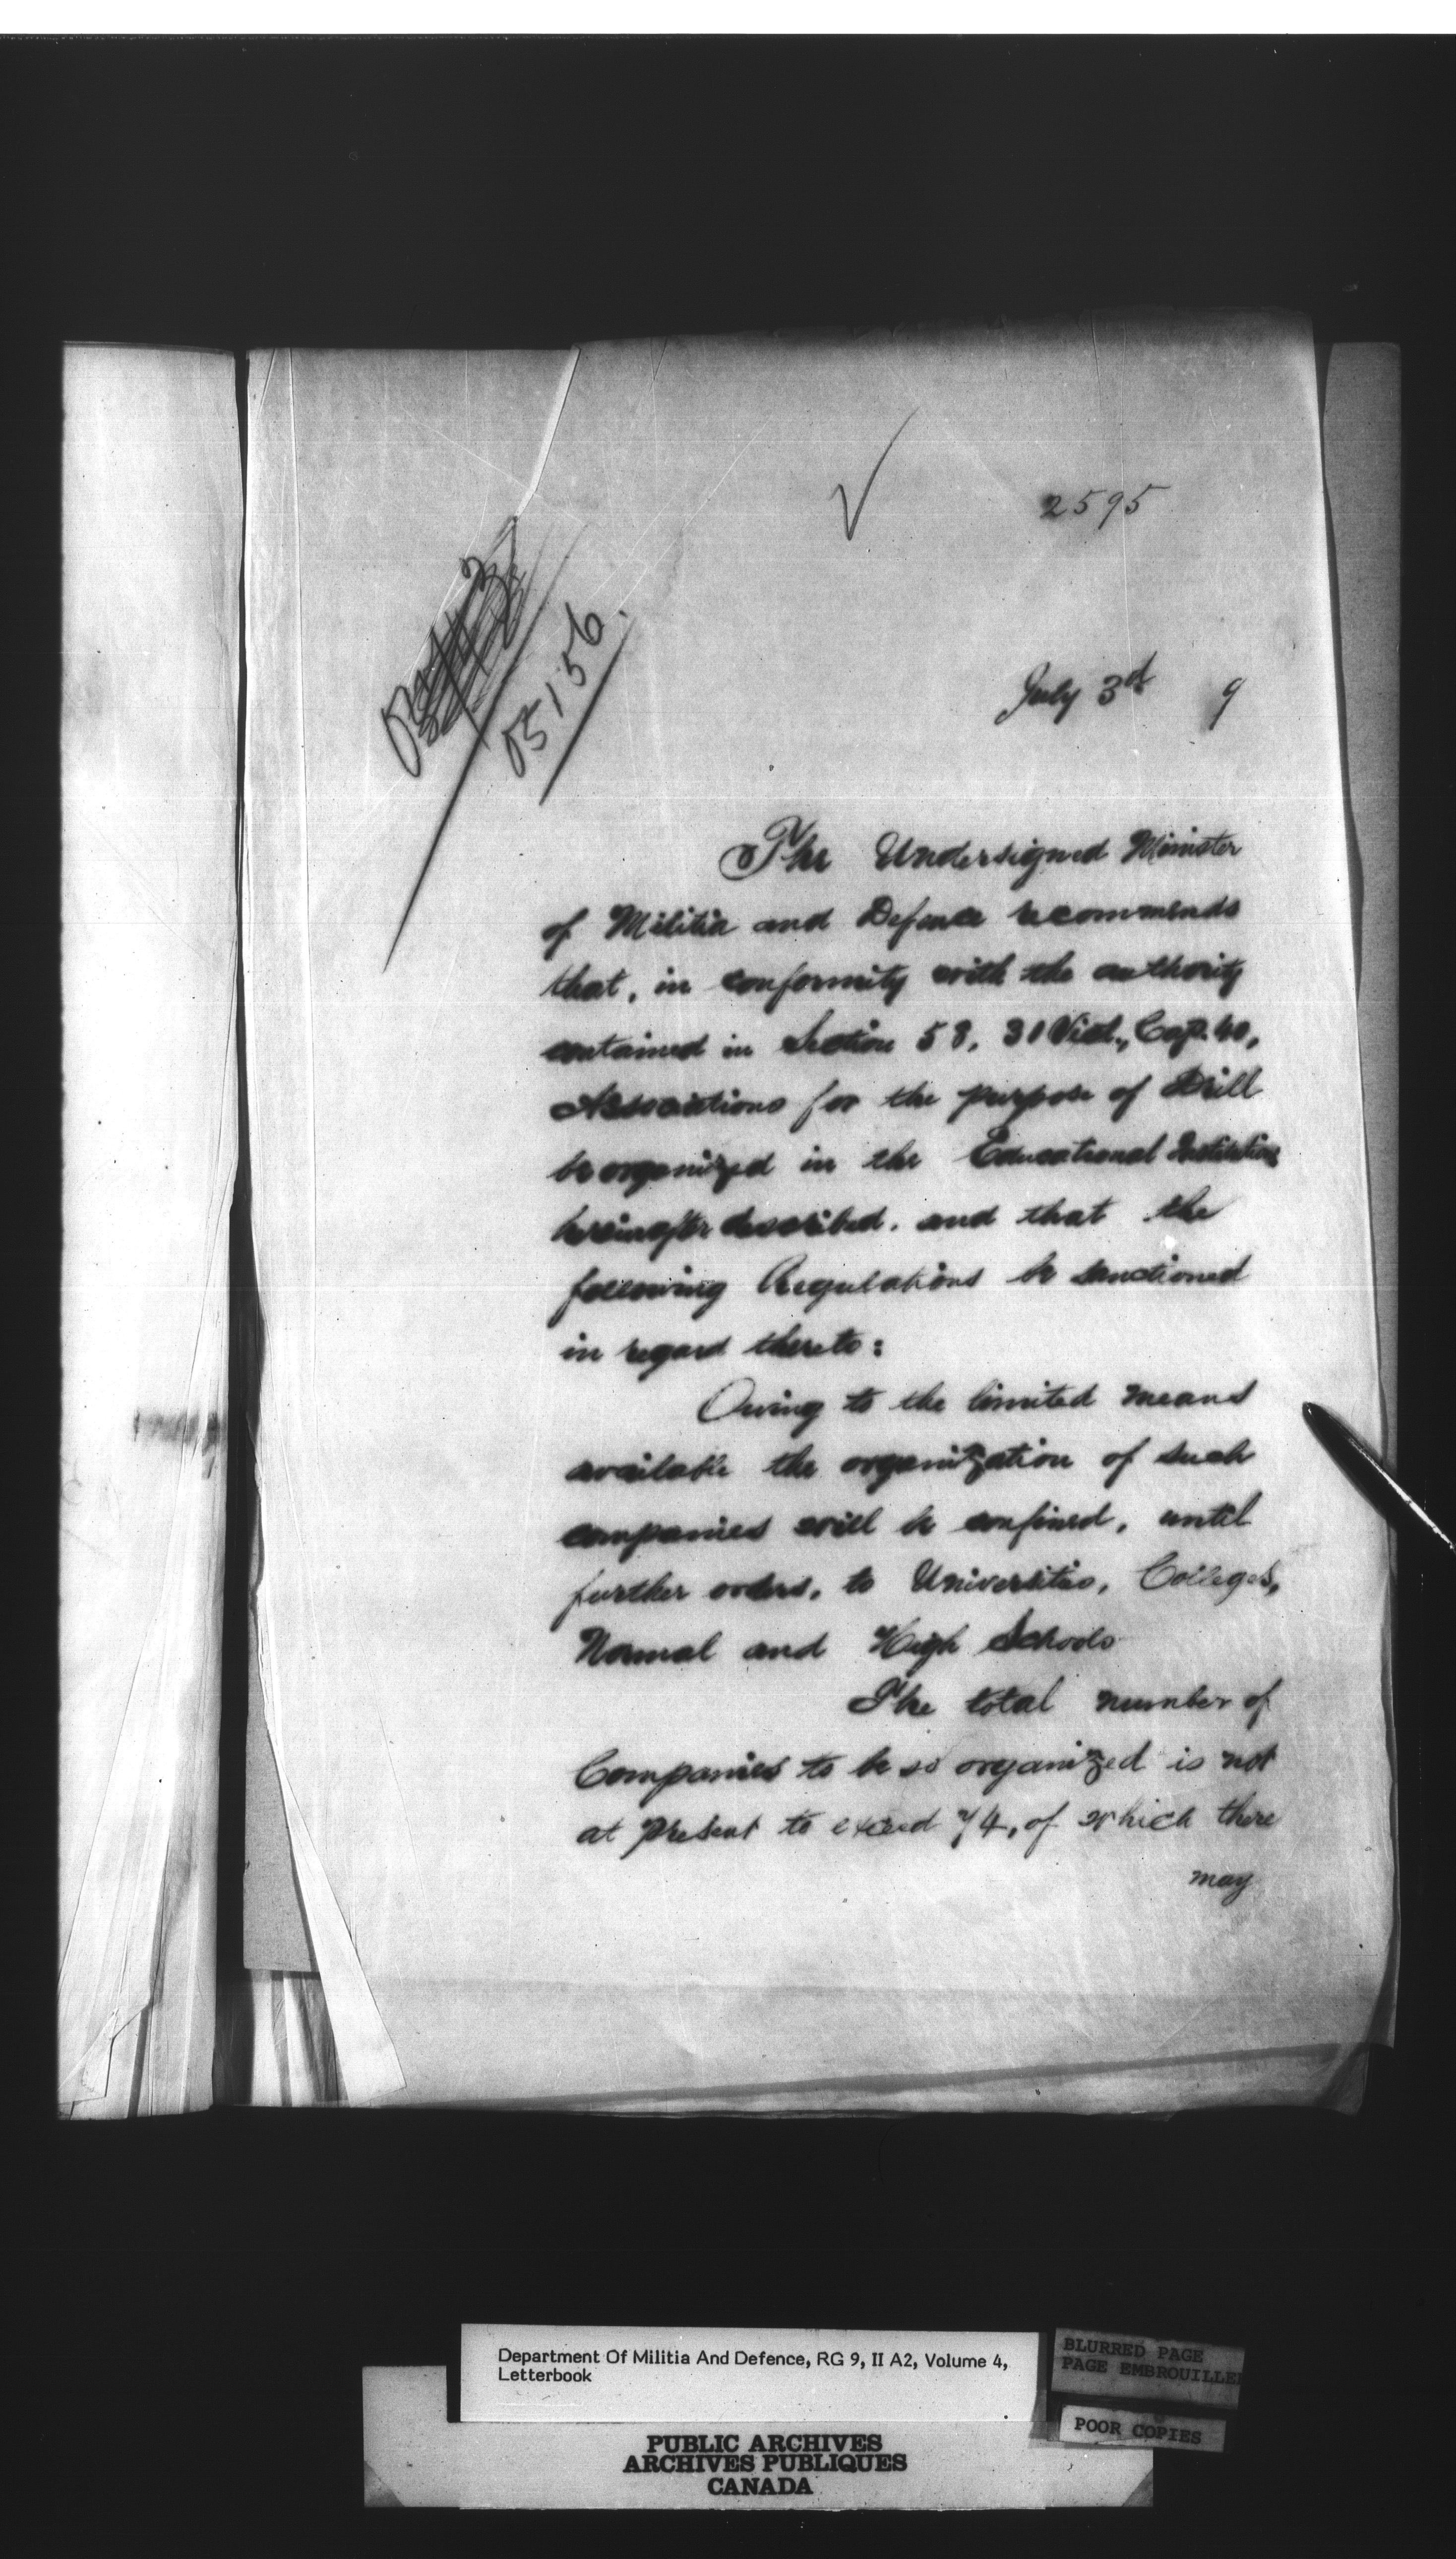 2595
05156.
July 3rd 9
The Undersigned Minister
of Militia and Defence recommends
that, in conformity with the authority
contained in Section 58, 31 Vict., Cap. 40,
Associations for the purpose of Drill
be organized in the Educational Institutions
hereinafter described, and that the
following Regulations be sanctioned
in regard thereto:
Owing to the limited means
available the organization of such
companies will be confined, until
further orders, to Universities, Colleges,
Normal and High Schools
The total number of
Companies to be so organized is not
at present to exceed 74, of which there
may
Department Of Militia And Defence, RG 9, II A2, Volume 4,
Letterbook
BLURRED PAGE
PAGE EMBROUILLE
POOR COPIES
PUBLIC ARCHIVES
ARCHIVES PUBLIQUES
CANADA